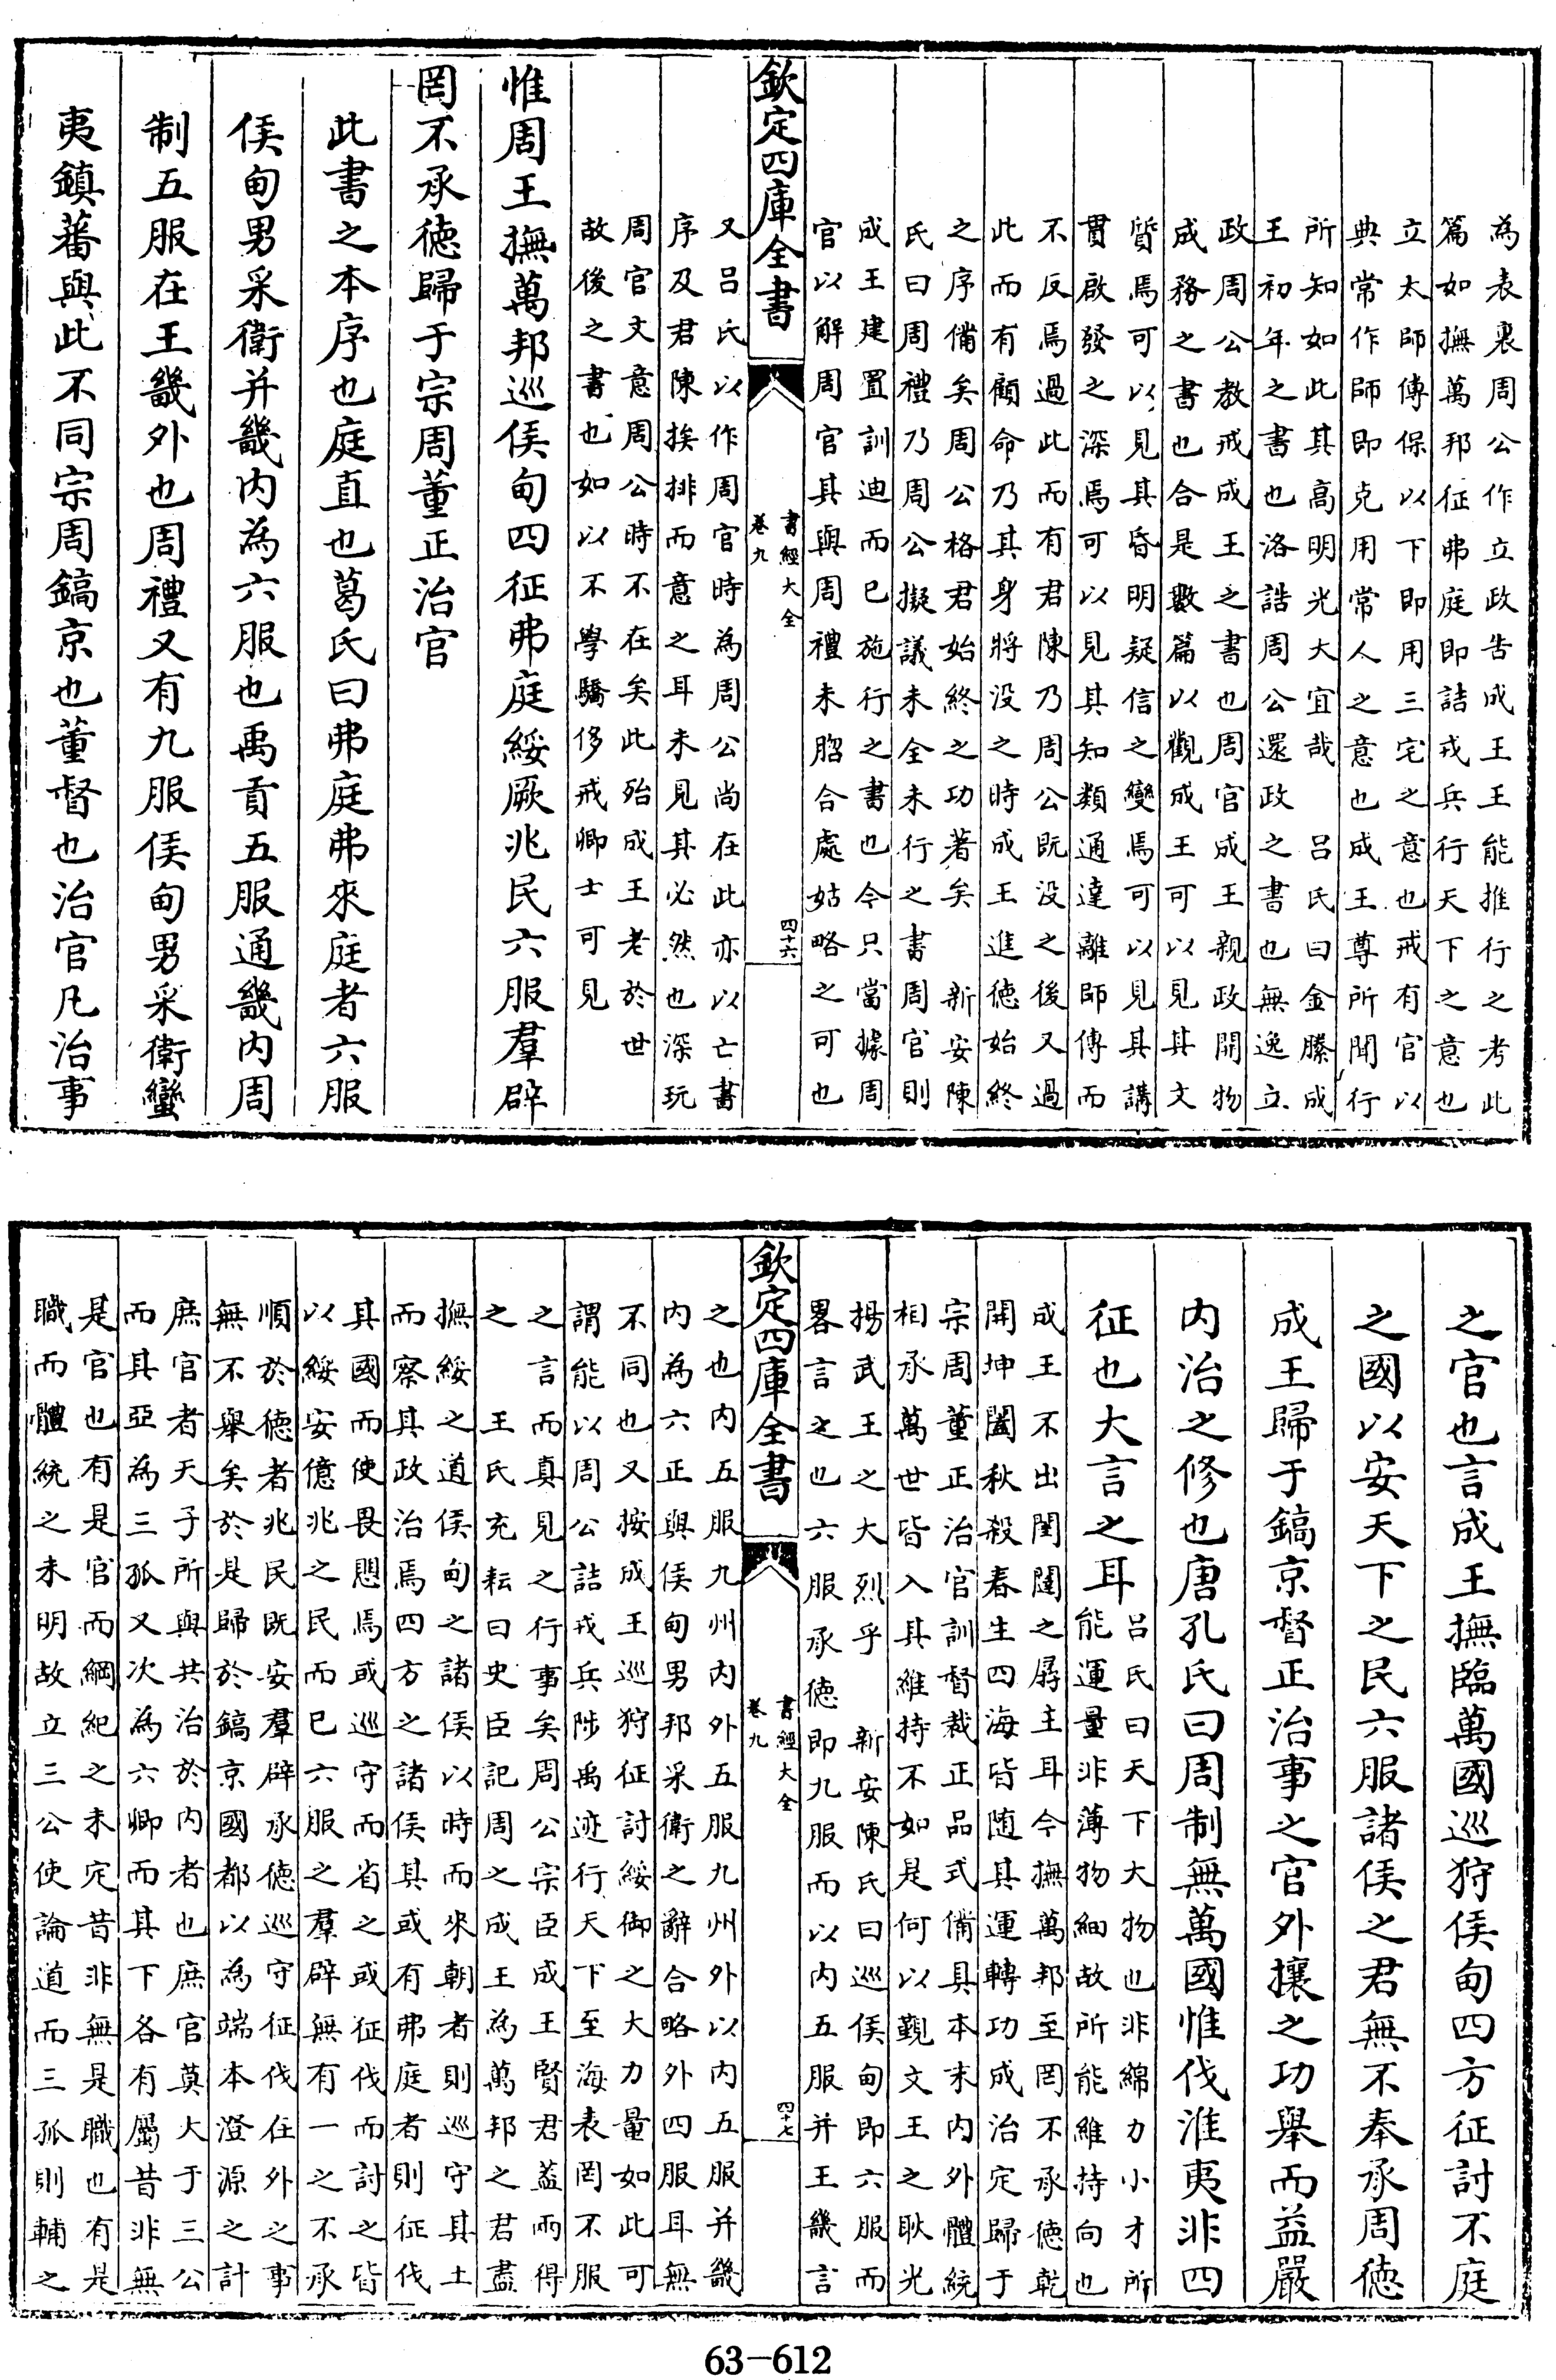 為表裏周公作立政告成王王能推行之考此
篇如撫萬邦征弗庭即詰戎兵行天下之意也
立太師傅保以下即用三宅之意也戒有官以
典常作師即克用常人之意也成王尊所聞行
所知如此其高明光大宜哉 呂氏曰金縢成
王初年之書也洛誥周公還政之書也無逸立
政周公教戒成王之書也周官成王親政開物
成務之書也合是數篇以觀成王可以見其文
質焉可以見其昏明疑信之變焉可以見其講
貫啟發之深焉可以見其知類通達離師傅而
不反焉過此而有君陳乃周公既没之後又過
此而有顧命乃其身將没之時成王進徳始終
之序備矣周公格君始終之功著矣 新安陳
氏曰周禮乃周公擬議未全未行之書周官則
成王建置訓迪而已施行之書也今只當據周
官以解周官其與周禮未脗合處姑略之可也
欽定四庫全書
書經大全
卷九
四十六
又呂氏以作周官時為周公尚在此亦以亡書
序及君陳挨排而意之耳未見其必然也深玩
周官文意周公時不在矣此殆成王老於世
故後之書也如以不學驕侈戒卿士可見
惟周王撫萬邦巡侯甸四征弗庭綏厥兆民六服羣辟
罔不承徳歸于宗周董正治官
此書之本序也庭直也葛氏曰弗庭弗來庭者六服
侯甸男采衛并畿内為六服也禹貢五服通畿内周
制五服在王畿外也周禮又有九服侯甸男采衛蠻
夷鎮蕃與此不同宗周鎬京也董督也治官凡治事
之官也言成王撫臨萬國巡狩侯甸四方征討不庭
之國以安天下之民六服諸侯之君無不奉承周徳
成王歸于鎬京督正治事之官外攘之功舉而益嚴
内治之修也唐孔氏曰周制無萬國惟伐淮夷非四
征也大言之耳
呂氏曰天下大物也非綿力小才所
能運量非薄物細故所能維持向也
成王不出閨闥之孱主耳今撫萬邦至罔不承徳乾
開坤闔秋殺春生四海皆随其運轉功成治定歸于
宗周董正治官訓督裁正品式備具本末内外體統
相承萬世皆入其維持不如是何以覲文王之耿光
揚武王之大烈乎 新安陳氏曰巡侯甸即六服而
畧言之也六服承徳即九服而以内五服并王畿言
欽定四庫全書
書經大全
卷九
四十七
之也内五服九州内外五服九州外以内五服并畿
内為六正與侯甸男邦采衛之辭合略外四服耳無
不同也又按成王巡狩征討綏御之大力量如此可
謂能以周公詰戎兵陟禹迹行天下至海表罔不服
之言而真見之行事矣周公宗臣成王賢君葢兩得
之 王氏充耘曰史臣記周之成王為萬邦之君盡
撫綏之道侯甸之諸侯以時而來朝者則巡守其土
而察其政治焉四方之諸侯其或有弗庭者則征伐
其國而使畏懼焉或巡守而省之或征伐而討之皆
以綏安億兆之民而已六服之羣辟無有一之不承
順於徳者兆民既安羣辟承徳巡守征伐在外之事
無不舉矣於是歸於鎬京國都以為端本澄源之計
庶官者天子所與共治於内者也庶官莫大于三公
而其亞為三孤又次為六卿而其下各有屬昔非無
是官也有是官而綱紀之未定昔非無是職也有是
職而體統之未明故立三公使論道而三孤則輔之
63-612